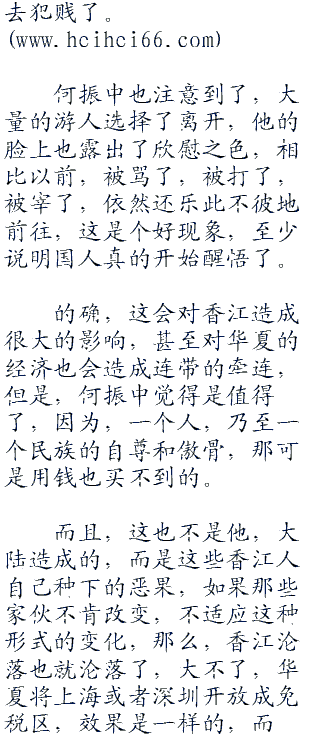 去犯贱了。
(www.hcihci66.com)
何振中也注意到了，大
量的游人选择了离开，他的
脸上也露出了欣慰之色，相
比以前，被骂了，被打了，
被宰了，依然还乐此不彼地
前往，这是个好现象，至少
说明国人真的开始醒悟了。
的确，这会对香江造成
很大的影响，甚至对华夏的
经济也会造成连带的牵连，
但是，何振中觉得是值得
了，因为，一个人，乃至一
个民族的自尊和傲骨，那可
是用钱也买不到的。
而且，这也不是他，大
陆造成的，而是这些香江人
自己种下的恶果，如果那些
家伙不肯改变，不适应这种
形式的变化，那么，香江沦
落也就沦落了，大不了，华
夏将上海或者深圳开放成免
税区，效果是一样的，而